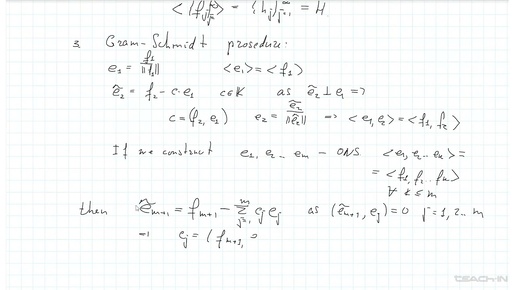 < {f_j}_{j=1}^∞ > = {h_j}_{j=1}^∞ = H
3. Gram-Schmidt prosedure:
e_1 = f_1/||f_1|| <e_1> = <f_1>
ẽ_2 = f_2 - c·e_1 c∈K as ẽ_2 ⊥ e_1 =>
c = (f_2, e_1) e_2 = ẽ_2/||ẽ_2|| => <e_1, e_2> = <f_1, f_2>
If we construct e_1, e_2 … e_m - ONS <e_1, e_2 … e_k> =
= <f_1, f_2 … f_k>
∀ k ≤ m
then ẽ_{m+1} = f_{m+1} - Σ_{j=1}^{m} c_j e_j as (ẽ_{m+1}, e_j) = 0 j = 1, 2 … m
=> c_j = (f_{m+1},
TEACH-IN